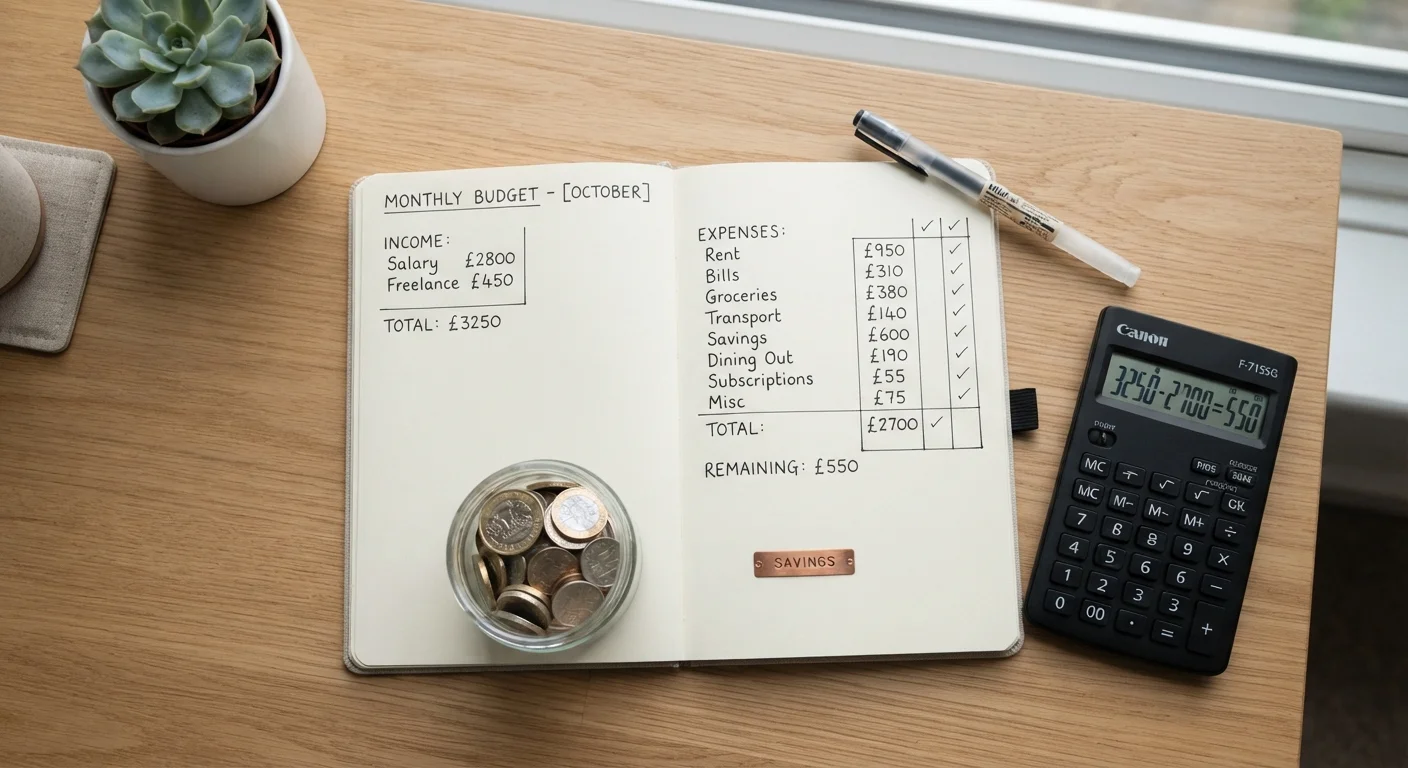 MONTHLY BUDGET - [OCTOBER]
INCOME:
Salary £2800
Freelance £450
TOTAL: £3250
EXPENSES: ✓ ✓
Rent £950 ✓
Bills £310 ✓
Groceries £380 ✓
Transport £140 ✓
Savings £600 ✓
Dining Out £190 ✓
Subscriptions £55 ✓
Misc £75 ✓
TOTAL: £2700 ✓
REMAINING: £550
SAVINGS
Canon
F-715SG
3250-2700=550
MC √ √
MC M- M- M+ ÷
7 8 8 9 ×
4 5 6 6 −
1 2 3 3 +
0 00 . =